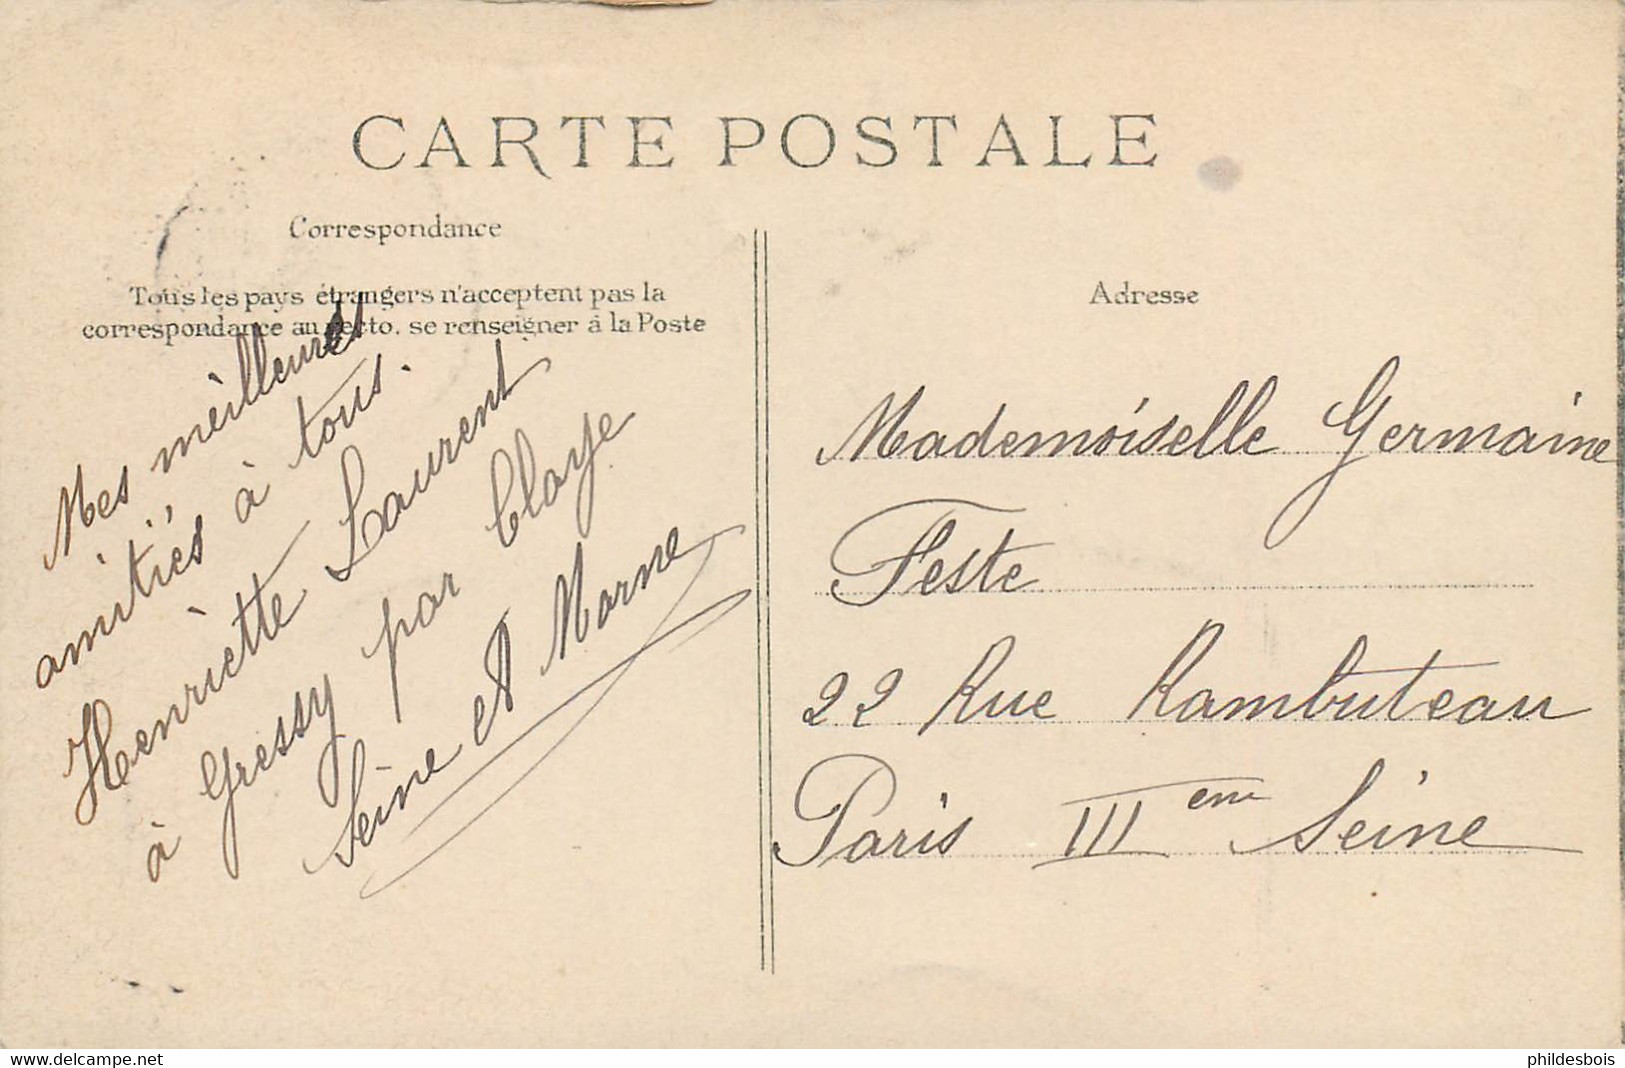 CARTE POSTALE
Correspondance
Tous les pays étrangers n'acceptent pas la
correspondance au recto. se renseigner à la Poste
Mes meilleures
amitiés à tous.
Henriette Laurent
à Gressy par Claye
Seine et Marne
Adresse
Mademoiselle Germaine
Feste
22 Rue Rambuteau
Paris III eme Seine
www.delcampe.net
phildesbois